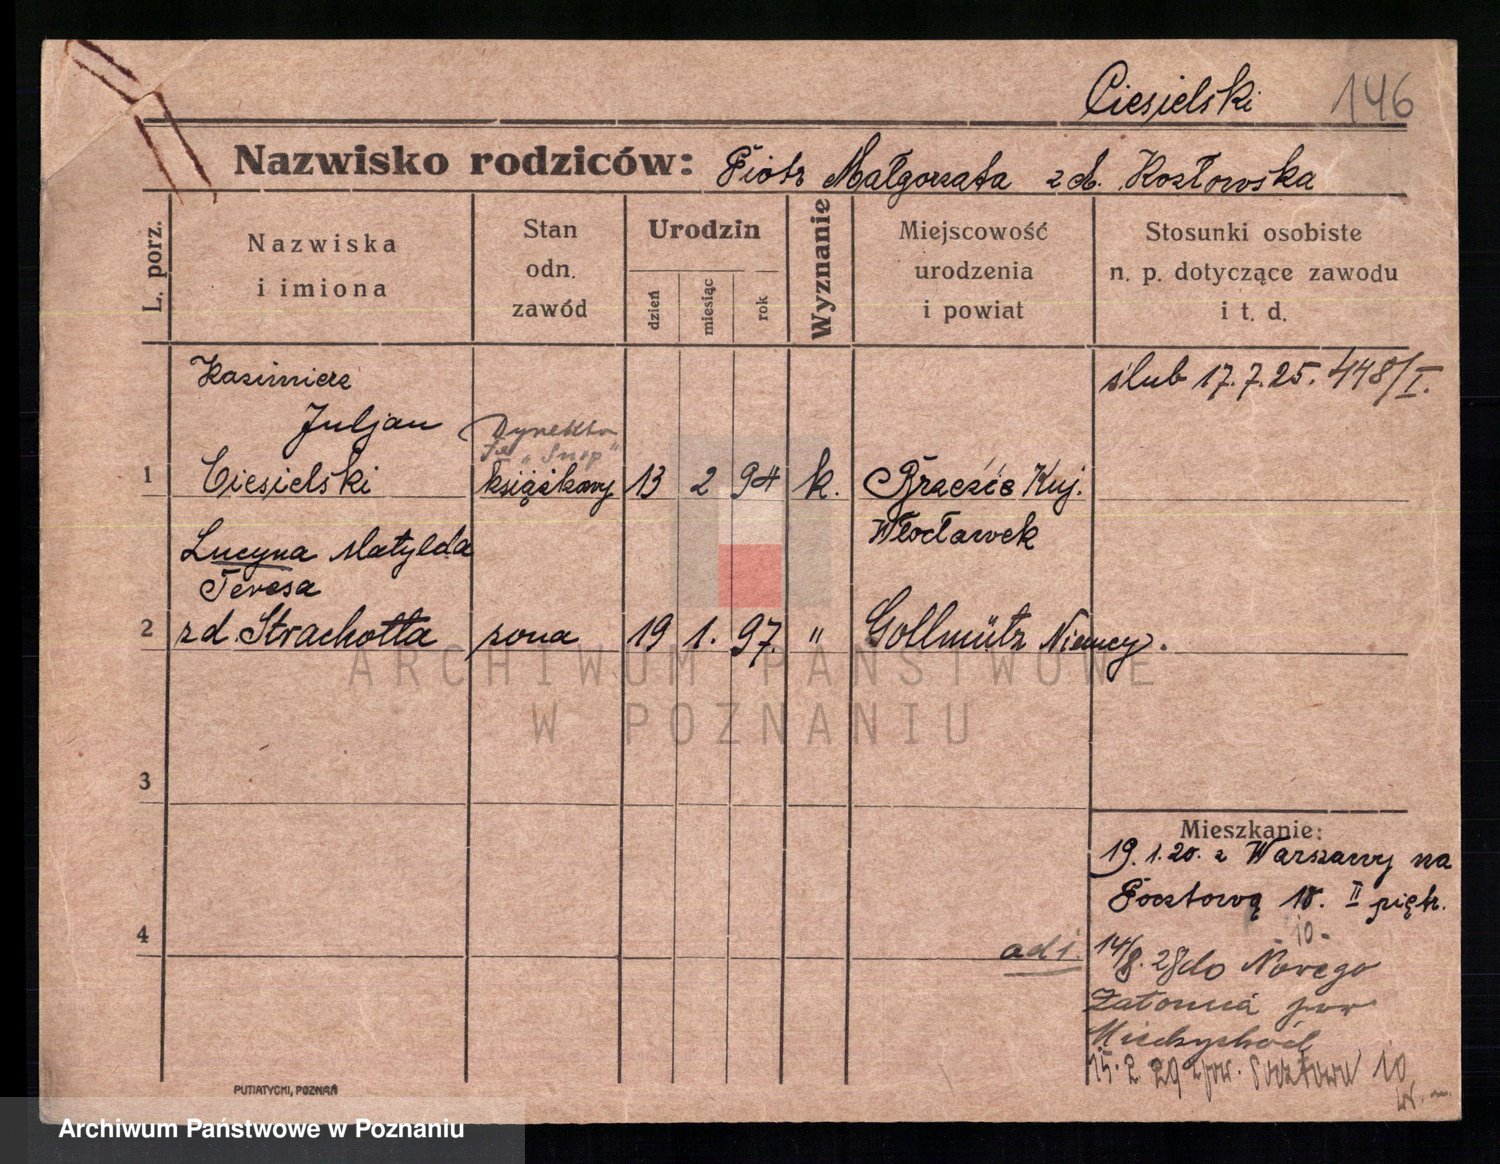 Ciesielski 146
Nazwisko rodziców: Piotr Małgorzata z d. Kozłowska
L. porz.
Nazwiska
i imiona
Stan
odn.
zawód
Urodzin
dzień
miesiąc
rok
Wyznanie
Miejscowość
urodzenia
i powiat
Stosunki osobiste
n. p. dotyczące zawodu
i t. d.
Kazimierz
Juljan
1 Ciesielski
Dyrektor
"Snop"
książkowy 13 2 94 k. Brześće Kuj.
Włocławek
ślub 17.7.25. 448/I.
Lucyna Matylda
Teresa
2 zd. Strachotta żona 19 1. 97. " Gollmütz Niemcy.
ARCHIWUM PAŃSTWOWE
W POZNANIU
3
4
Mieszkanie:
19.1.20. z Warszawy na
Pocztową 18. II piętr.
10.-
adi. 14/8. 28 do Nowego
Zatomia pow
Międzychód
15.2 29 z pow. Pocztowa 10
PUTIATYCKI, POZNAŃ
Archiwum Państwowe w Poznaniu